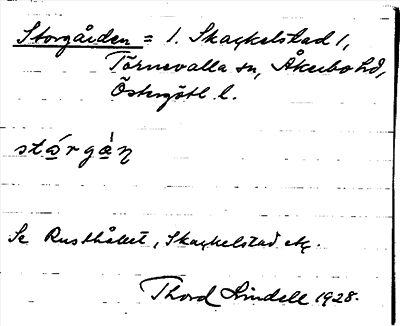 Storgården = 1. Skackelstad 1,
Törnevalla sn, Åkerbo hd,
Östergötl. l.
stá̱rgà̱n
Se Rusthållet, Skackelstad etc.
Thord Lindell 1928.